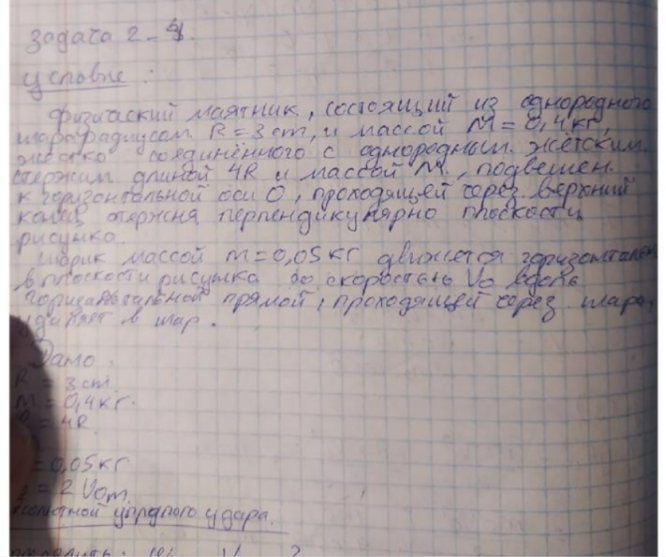 задача 2-
условие:
физический маятник, состоящий из однородного
шара радиусом R=3cm, и массой M=0,4кг,
жёстко соединённого с однородным жёстким
стержнем длиной 4R и массой M, подвешен
к горизонтальной оси O, проходящей через верхний
конец стержня перпендикулярно плоскости
рисунка.
шарик массой m=0,05кг движется горизонтально
в плоскости рисунка со скоростью V₀ вдоль
горизонтальной прямой, проходящей через шара,
в шар.
Дано:
= 3cm
M = 0,4кг.
= 4R
= 0,05кг
= 2 V₀m.
упругого удара.